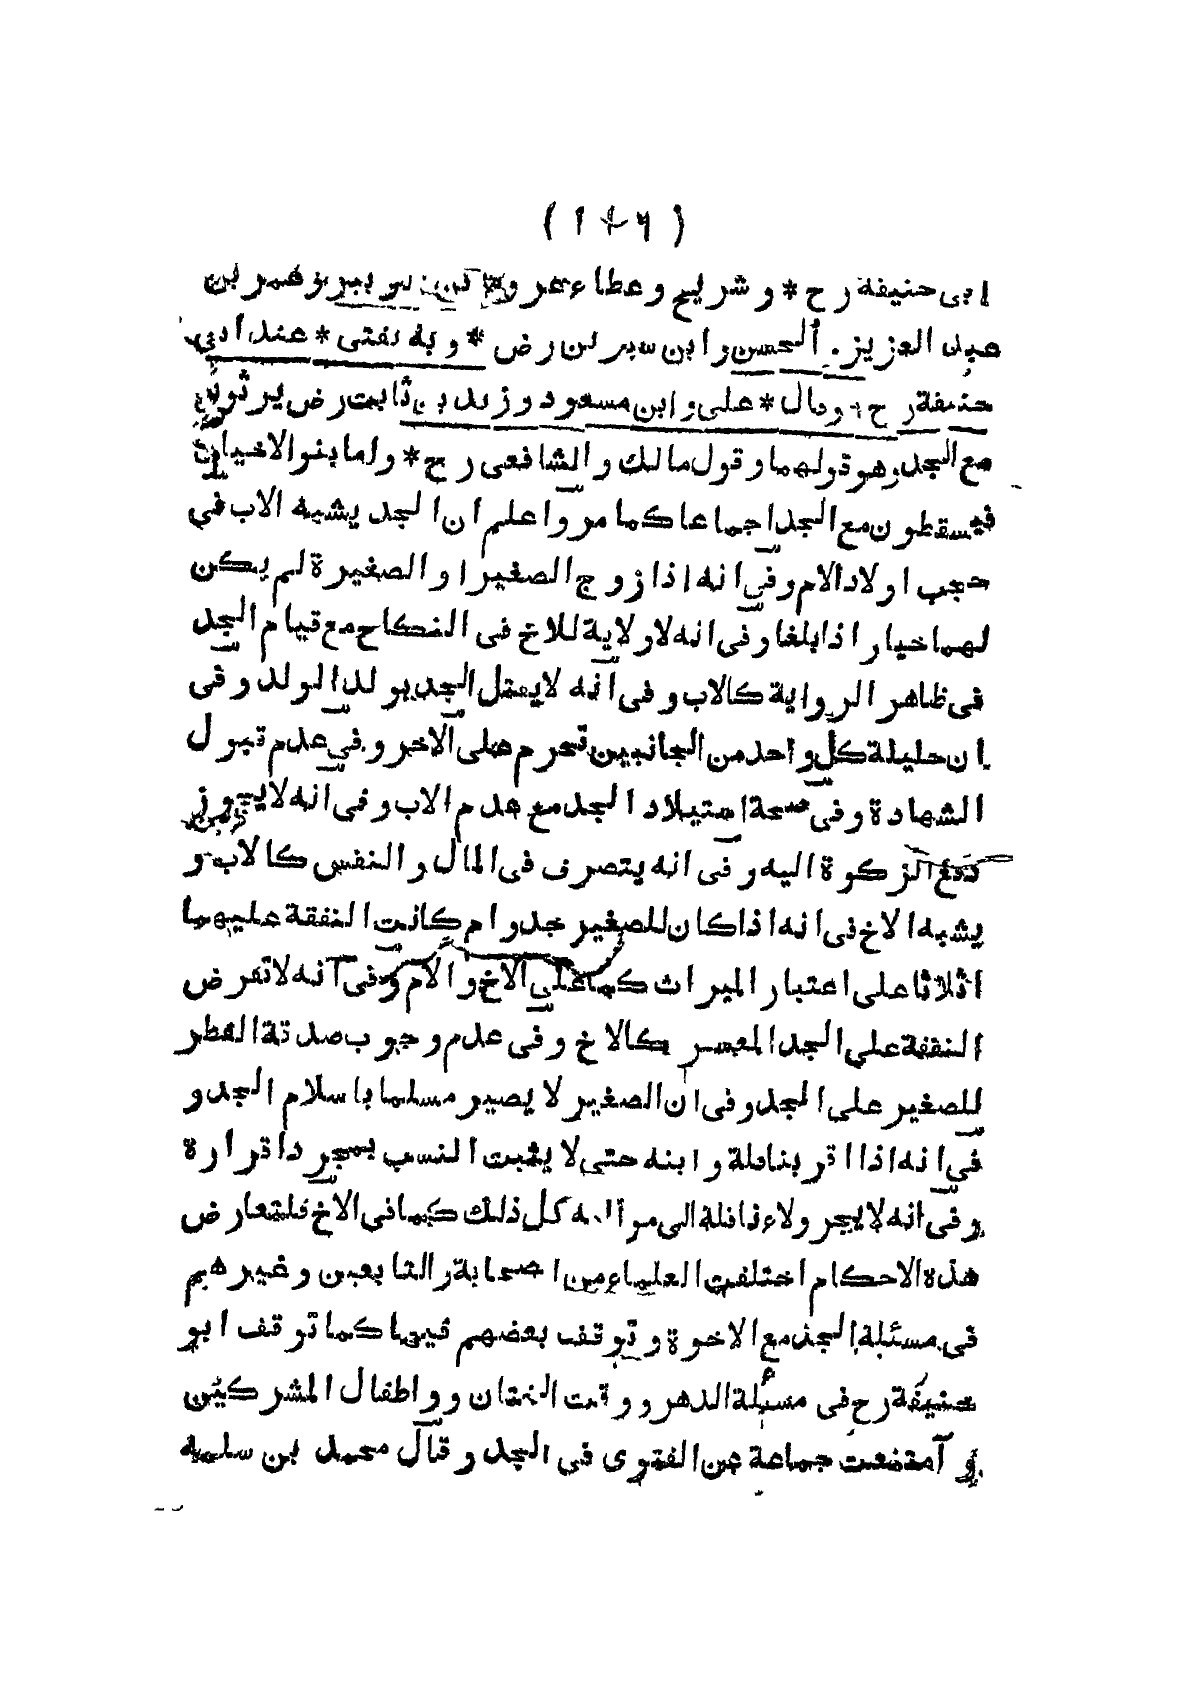 ( ١٠٦ )
ابى حنيفة رح * و شريح و عطاء و عمر بن
عبد العزيز و الحسن و ابن سيرين رض * و به نفتى * عند ابى
حنيفة رح * وقال * على و ابن مسعود و زيد بن ثابت رض يرثون
مع الجد وهو قولهما و قول مالك و الشافعى رح * و اما بنو الاخياف
فيسقطون مع الجد اجماعا كما مر و اعلم ان الجد يشبه الاب فى
حجب اولاد الام و فى انه اذا زوج الصغير او الصغيرة لم يكن
لهما خيار اذا بلغا و فى انه لا ولاية للاخ فى النكاح مع قيام الجد
فى ظاهر الرواية كالاب و فى انه لا يقتل الجد بولد الولد و فى
ان حليلة كل واحد من الجانبين تحرم على الآخر و فى عدم قبول
الشهادة و فى صحة استيلاد الجد مع عدم الاب و فى انه لا يجوز
دفع الزكوة اليه و فى انه يتصرف فى المال و النفس كالاب و
يشبه الاخ فى انه اذا كان للصغير جد و ام كانت النفقة عليهما
اثلاثا على اعتبار الميراث كما على الاخ و الام و فى انه لا تفرض
النفقة على الجد المعسر كالاخ و فى عدم وجوب صدقة الفطر
للصغير على الجد و فى ان الصغير لا يصير مسلما باسلام الجد و
فى انه اذا اقر بنافلة و ابنه حتى لا يثبت النسب بمجرد اقراره
و فى انه لا يجر ولاء نافلة الى مواليه كل ذلك كما فى الاخ فلتعارض
هذه الاحكام اختلفت العلماء من اصحابة و التابعين و غيرهم
فى مسئلة الجد مع الاخوة و توقف بعضهم فيها كما توقف ابو
حنيفة رح فى مسئلة الدهر و وقت الختان و واطفال المشركين
و امتنعت جماعة عن الفتوى فى الجد و قال محمد بن سلمة